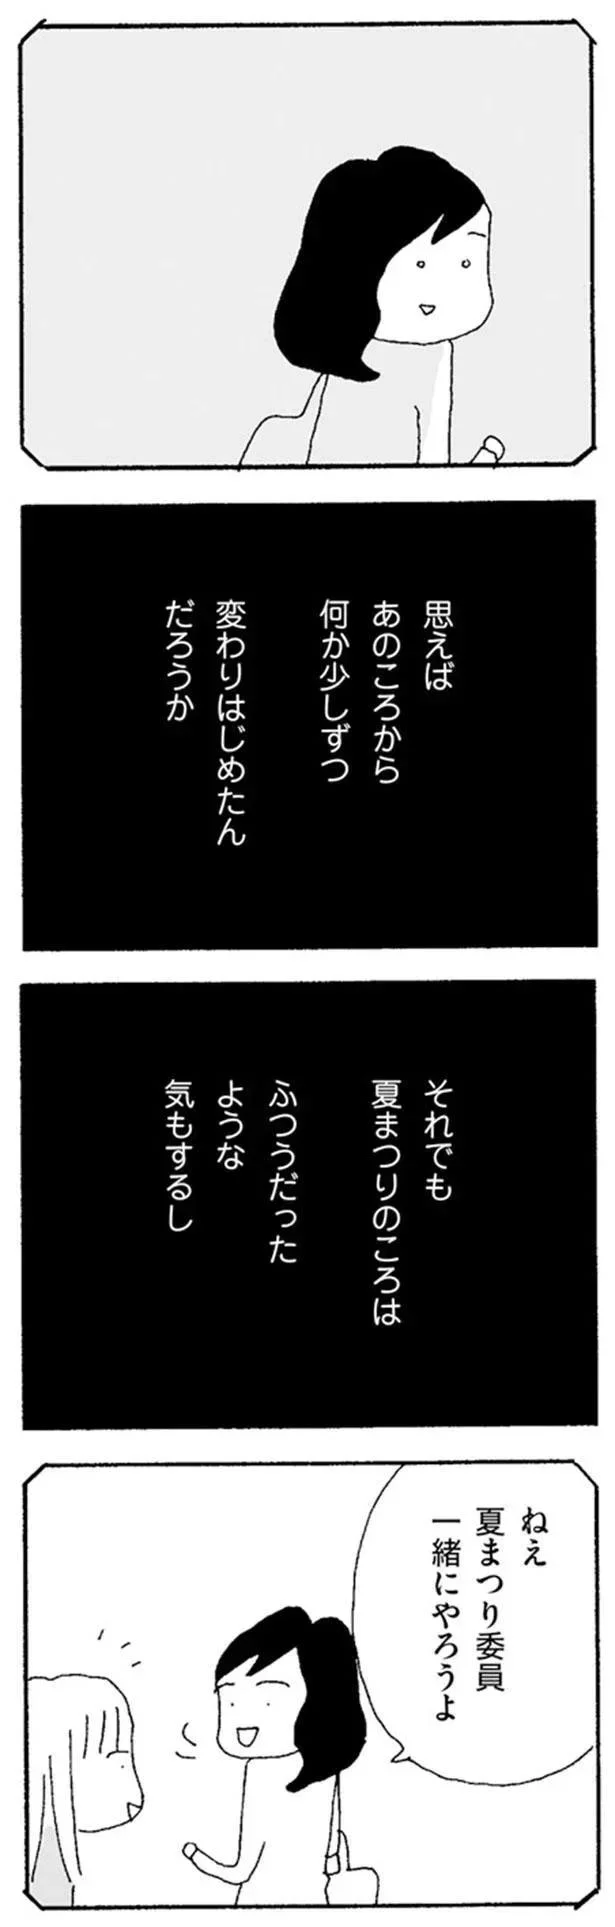 思えば
あのころから
何か少しずつ
変わりはじめたん
だろうか
それでも
夏まつりのころは
ふつうだった
ような
気もするし
ねえ
夏まつり委員
一緒にやろうよ